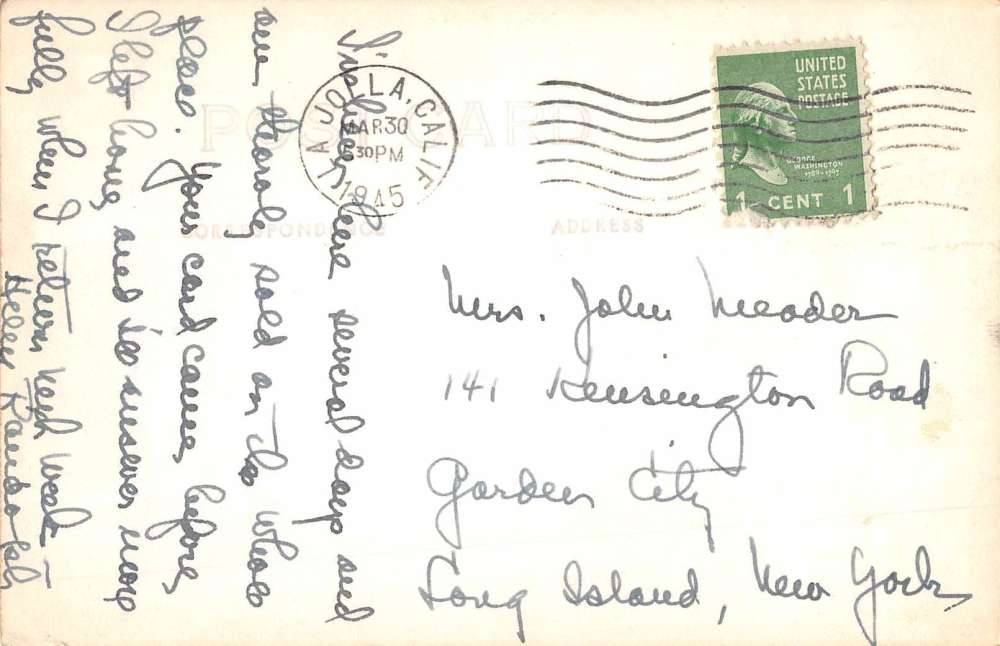 POST CARD
CORRESPONDENCE
ADDRESS
LA JOLLA, CALIF
MAR 30
30 PM
1945
UNITED
STATES
POSTAGE
GEORGE
WASHINGTON
1789-1797
1 CENT 1
I've been here several days and
am thoroly sold on the whole
place. Your card came before
I left home, and I'll answer more
fully when I return next week
Helen Randolph
Mrs. John Meader
141 Kensington Road
Garden City
Long Island, New York